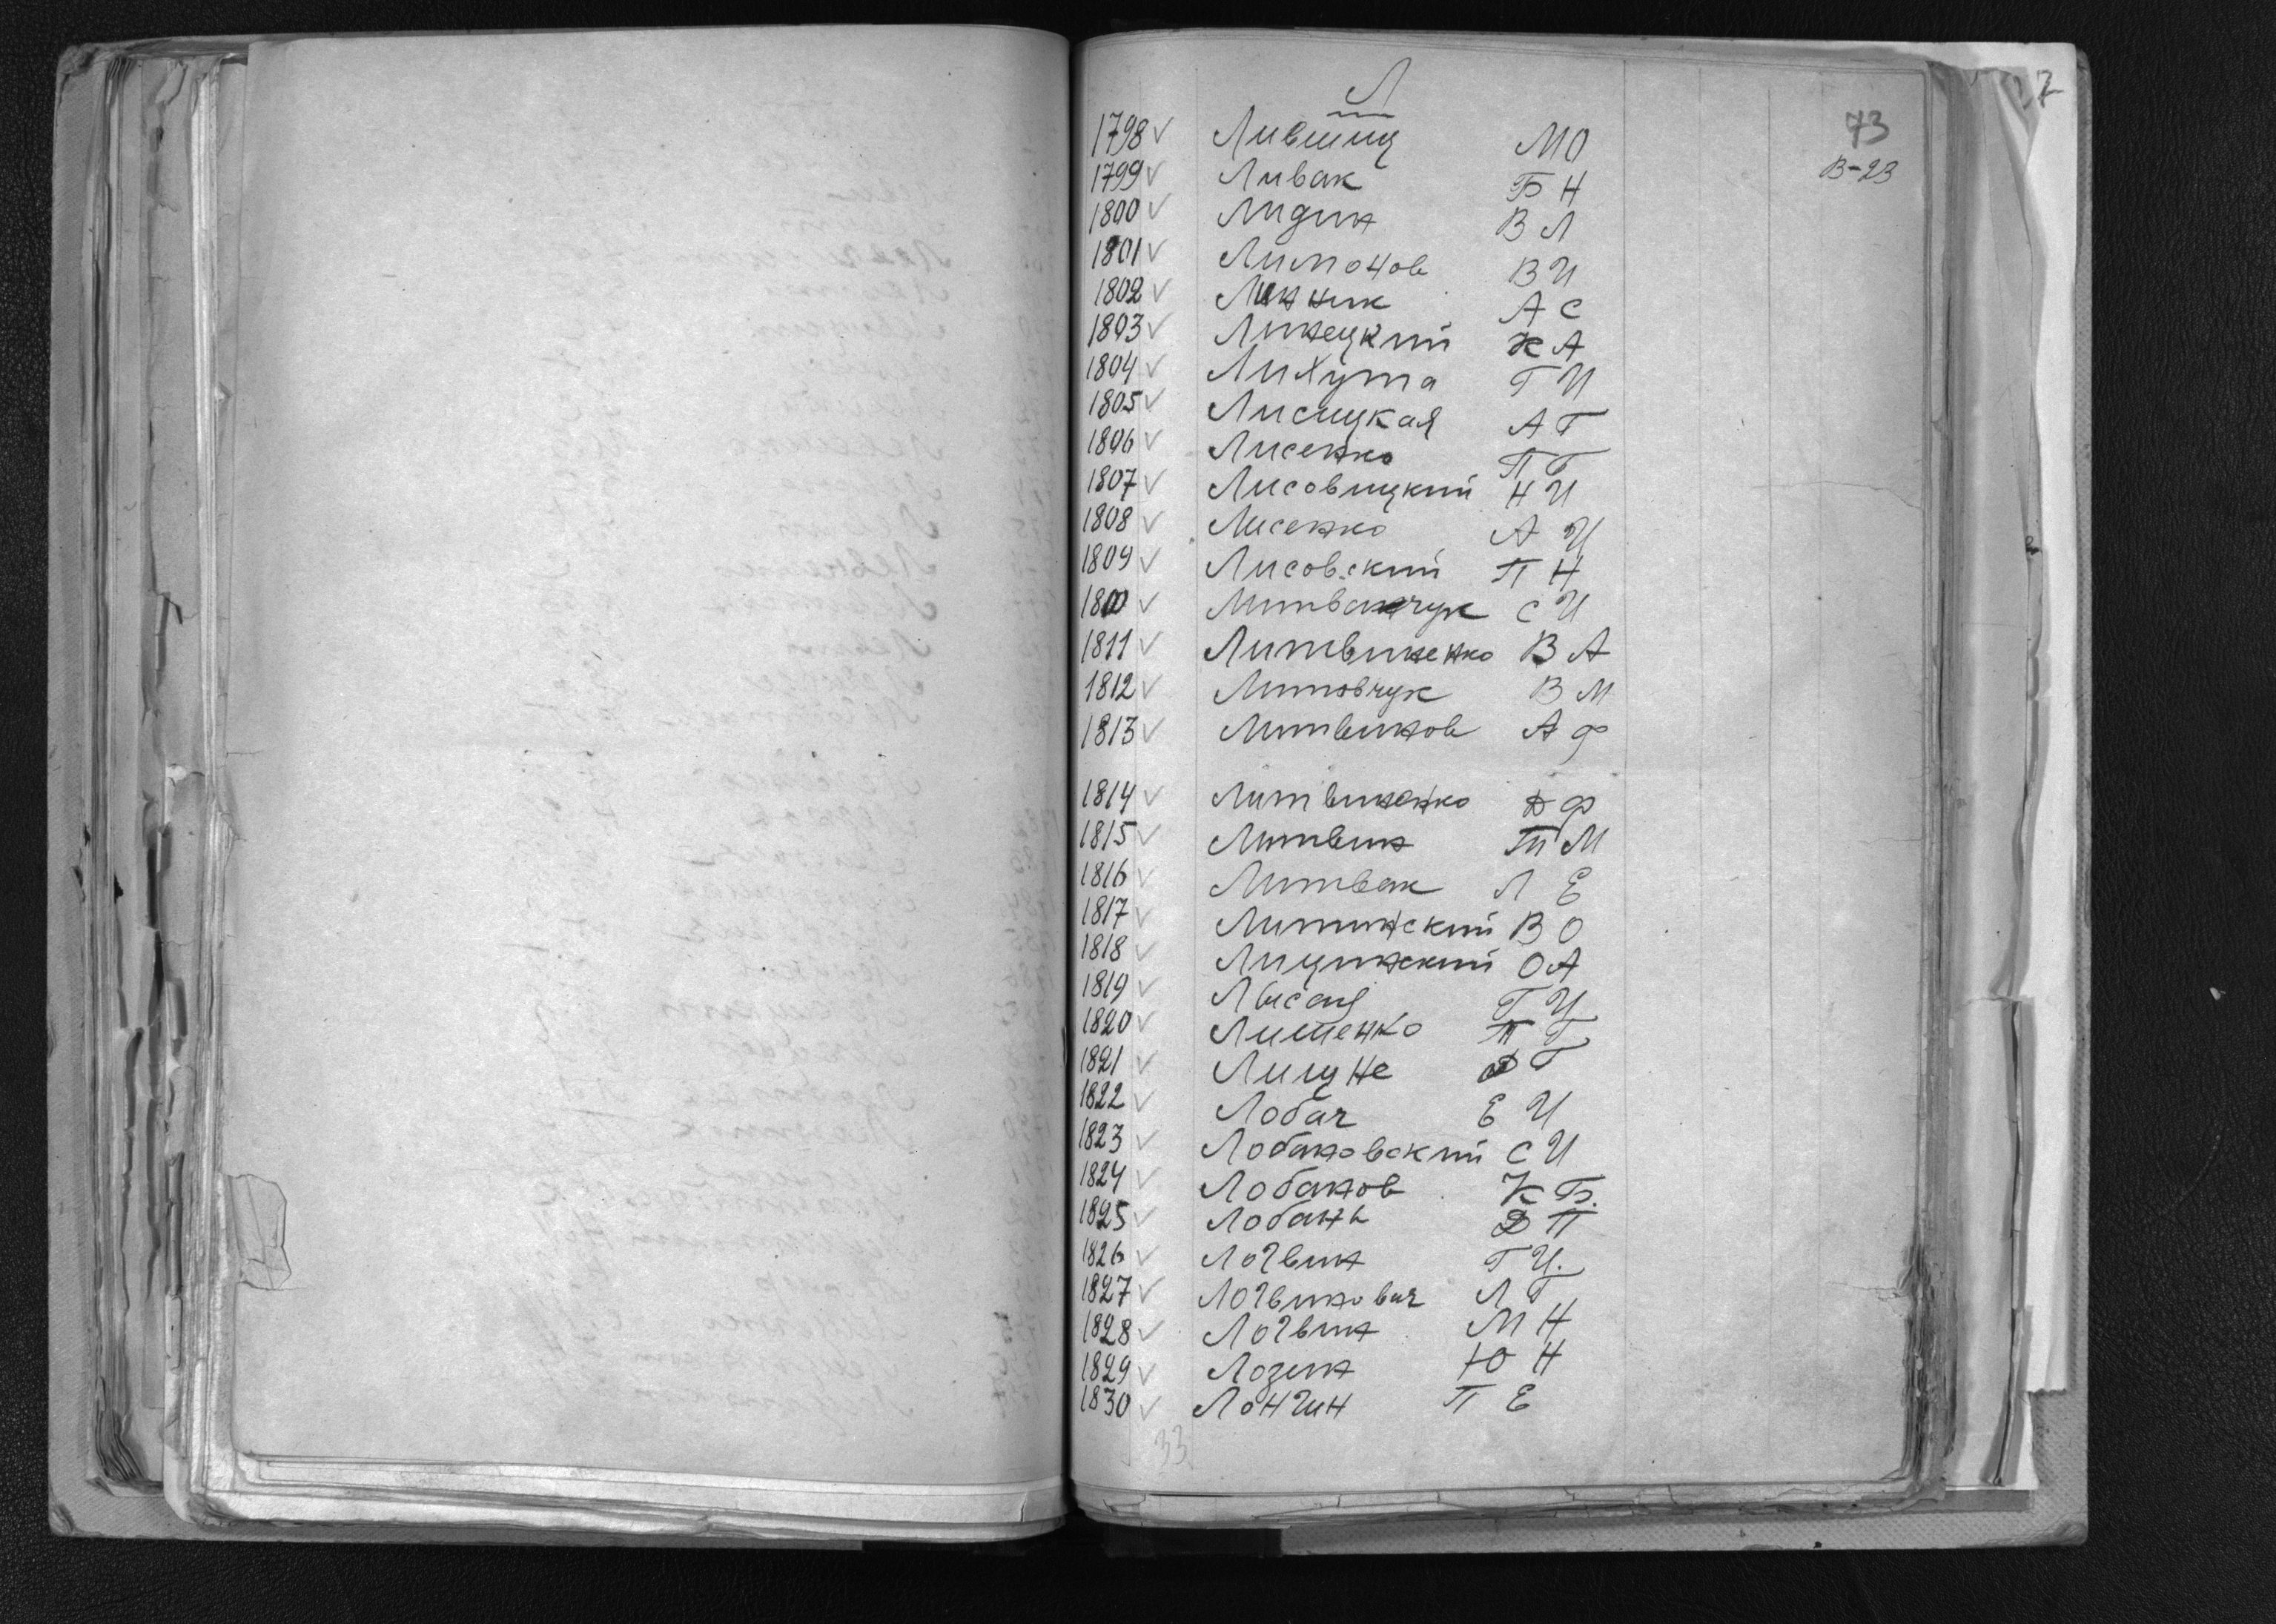 Л
73
В-23
1798 ✓ Лившиц М О
1799 ✓ Ливак Б Н
1800 ✓ Лидин В Л
1801 ✓ Лимонов В И
1802 ✓ Линник А С
1803 ✓ Линецкий К А
1804 ✓ Лихута Г И
1805 ✓ Лисицкая А Г
1806 ✓ Лисенко П Г
1807 ✓ Лисовицкий Н И
1808 ✓ Лисенко А И
1809 ✓ Лисовский П Н
1810 ✓ Литванчук С И
1811 ✓ Литвиненко В А
1812 ✓ Литовчук В М
1813 ✓ Литвинов А Ф
1814 ✓ Литвиненко Ф
1815 ✓ Литвин М
1816 ✓ Литвак Л Е
1817 ✓ Литинский В О
1818 ✓ Лицинский О А
1819 ✓ Лысая Г И
1820 ✓ Лишенко П Г
1821 ✓ Лищне Г
1822 ✓ Лобач Е И
1823 ✓ Лобановский С И
1824 ✓ Лобанов К Б.
1825 ✓ Лобань Д П
1826 ✓ Логвин Г И.
1827 ✓ Логвинович Л Г
1828 ✓ Логвин М Н
1829 ✓ Лозин Ю Н
1830 ✓ Лонгин П Е
33